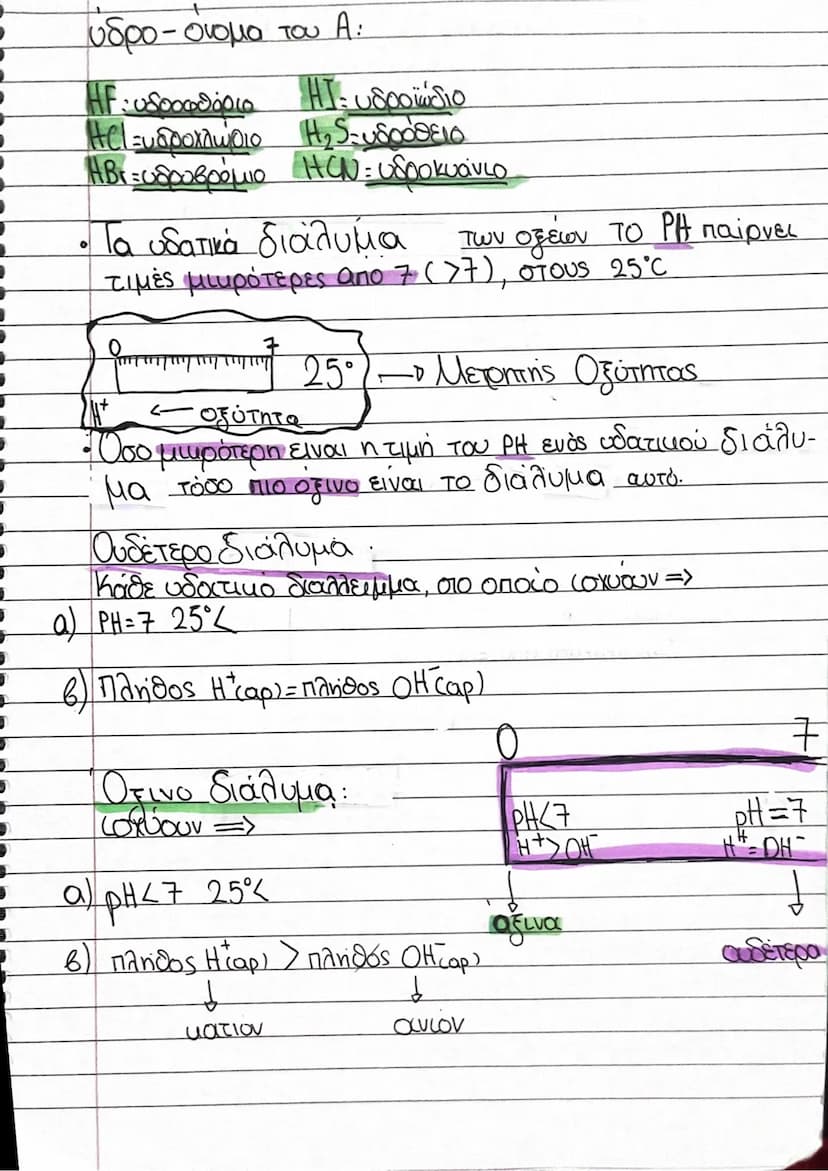 ύδρο-όνομα του Α:
HF: υδροφθόριο HI= υδροϊώδιο
HCl=υδροχλώριο H₂S=υδρόθειο
HBr=υδροβρόμιο HCN= υδροκυάνιο
• Τα υδατικά διάλυμα των οξείων το PH παίρνει
τιμές μικρότερες από 7 (>7), στους 25°C
0 7
25° → Μετρητής Οξύτητας
H⁺ ← οξύτητα
• Όσο μικρότερη είναι η τιμή του PH ενός υδατικού διάλυ-
μα τόσο πιο όξινο είναι το διάλυμα αυτό.
Ουδέτερο διάλυμα:
Κάθε υδατικό διαλλειμμα, στο οποίο ισχύουν =>
α) PH=7 25°C
β) Πλήθος H⁺(aq)=πλήθος OH⁻(aq)
0 7
Όξινο διάλυμα:
ισχύουν =>
pH<7 pH=7
H⁺>OH⁻ H⁺=OH⁻
α) pH<7 25°C
όξινα ουδέτερο
β) πλήθος H⁺(aq) > πλήθός OH⁻(aq)
κατιον ανιόν